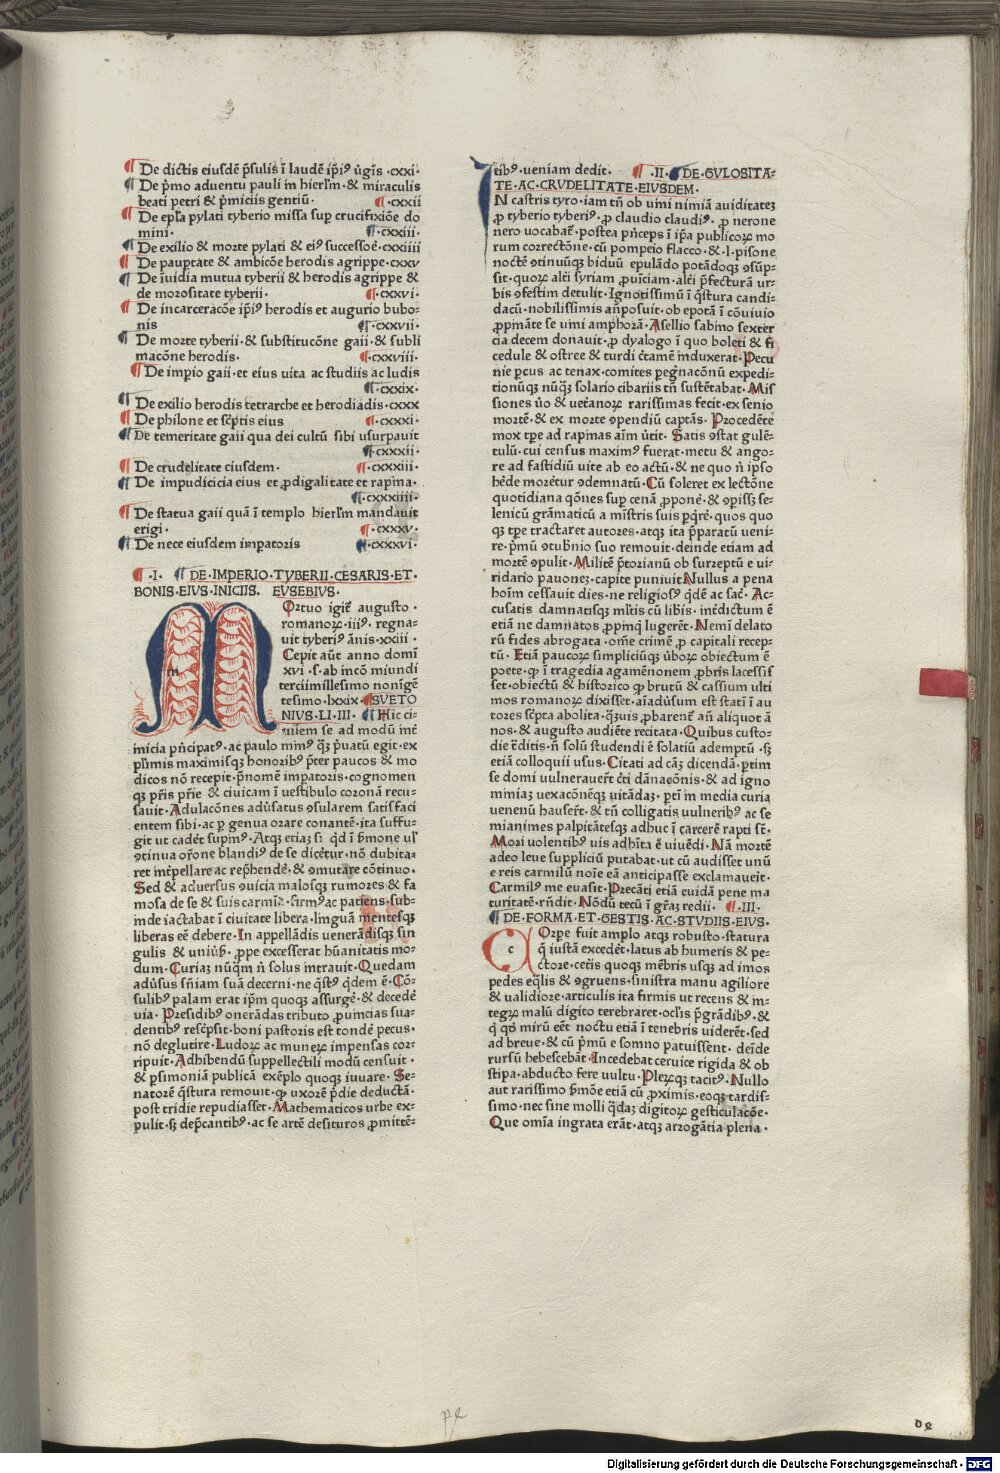 ¶ De dictis eiusdē p̄sulis ī laudē ip̄iꝰ ūgīs ·cxxi·
¶ De p̄mo aduentu pauli in hierl̄m·& miraculis
beati petri & p̄miciis gentiū· ¶·cxxii
¶ De ep̄la pylati tyberio missa sup crucifixiōe do
mini· ¶·cxxiii·
¶ De exilio & morte pylati & eiꝰ successoē·cxxiiii
¶ De paupẗate & ambicōe herodis agrippe·cxxv
¶ De īuidia mutua tyberii & herodis agrippe &
de morositate tyberii· ¶·cxxvi·
¶ De incarceracōe ip̄iꝰ herodis et augurio bubo-
nis ¶·cxxvii·
¶ De morte tyberii·& substitucōne gaii·& subli
macōne herodis· ¶·cxxviii·
¶ De imp̄io gaii·et eius uita ac studiis ac ludis
¶·cxxix·
¶ De exilio herodis tetrarche et herodiadis·cxxx
¶ De philone et sc̄ptis eius ¶·cxxxi·
¶ De temeritate gaii qua dei cultū sibi usurpauit
¶·cxxxii·
¶ De crudelitate eiusdem· ¶·cxxxiii·
¶ De impudicicia eius et ꝓdigalitate et rapina·
¶·cxxxiiii·
¶ De statua gaii quā ī templo hierl̄m mandauit
erigi· ¶·cxxxv·
¶ De nece eiusdem imp̄atoris ¶·cxxxvi·
¶·I· ¶ DE·IMPERIO·TYBERII·CESARIS·ET·
BONIS·EIVS·INICIIS. EVSEBIVS·
m Ortuo igiẗ augusto ·
romanoꝝ·iiiꝰ· regna-
uit tyberiꝰ ānis·xxiii ·
Cepit aūt anno domī
xvi ·s·ab īncō miundi
terciimillesimo nonīgē
tesimo·lxxix·¶SVETO
NIVS·LI·III· ¶ Hic ci-
uilem se ad modū īnt̄
inicia pn̄cipatꝰ·ac paulo minꝰ qꝫ p̄uatū egit·ex
pl̄imis maximisqꝫ honoribꝰ p̄ter paucos & mo
dicos nō recepit·p̄nomē imp̄atoris·cognomen
qꝫ pr̄is pr̄ie & ciuicam ī uestibulo coronā recu-
sauit·Adulacōnes adūsatus ꝯsularem satisfaci
entem sibi·ac ꝑ genua orare conantē·ita suffu-
git ut cadēt supinꝰ· Atqꝫ etiaꝫ si qd ī ẜmone ul̄
ꝯtinua or̄one blandiꝰ de se dicēt̄ur·nō dubita-
ret int̄pellare ac rep̄hendē·& ꝯmutare cōtinuo·
Sed & aduersus ꝯuicia malosqꝫ rumores & fa
mosa de se & suis carmīa·firmꝰac patiens·sub-
inde iactabat ī ciuitate libera·linguā mentesqꝫ
liberas eē debere·In appellādis uenerādisqꝫ sin
gulis & uniūẜ· ꝓpe excesserat hūanitatis mo-
dum·Curiaꝫ nūqm̄ n̄ solus intrauit·Quedam
adūsus sn̄iam suā decerni·ne qstꝰ qdem ē·Cō-
sulibꝰ palam erat ip̄m quoqꝫ assurgē·& decedē
uia· Presidibꝰ onerādas tributo ꝓuincias sua-
dentibꝰ resc̄psit·boni pastoris est tondē pecus·
nō deglutire·Ludoꝝ ac muneꝝ impensas cor-
ripuit·Adhibendū suppellectili modū censuit ·
& ꝑsimoniā publicā exēplo quoqꝫ iuuare· Se-
natorē qstura remouit·ꝙ uxorē p̄die deductā·
post tridie repudiasset·Mathematicos urbe ex-
pulit·sꝫ dep̄cantibꝰ·ac se artē desituros ꝓmittē-
tibꝰ·ueniam dedit· ¶·II·¶DE·GVLOSITA-
TE·AC·CRVDELITATE·EIVSDEM·
N castris tyro·iam tn̄ ob uini nimiā auiditateꝫ
ꝓ tyberio tyberiꝰ· ꝓ claudio claudiꝰ· ꝓ nerone
nero uocabat̄·postea pn̄ceps ī ip̄a publicoꝝ mo
rum correctōne·cū pompeio flacco·& l·pisone
noctē ꝯtinuūqꝫ biduū epulādo potādoqꝫ ꝯsūp-
sit·quoꝝ alt̄i syriam ꝓuīciam·alt̄i p̄fecturā ur-
bis ꝯfestim detulit·Ignotissimū ī qstura candi-
dacū·nobilissimis an̄posuit·ob epotā ī cōuiuio
ꝓpinante se uini amphorā·Asellio sabino sexter
cia decem donauit·ꝓ dyalogo ī quo boleti & fi
cedule & ostree & turdi c̄tamē induxerat·Pecu
nie ꝑcus ac tenax·comites pegn̄acōnū expedi-
tionūqꝫ nūqꝫ solario cibariis tn̄ sustētabat·Mis
siones ūo & uet̄anoꝝ rarissimas fecit·ex senio
mortē·& ex morte ꝯpendiū captās· Procedēte
mox tꝑe ad rapinas aīm ūtit· Satis ꝯstat gulē-
tulū·cui census maximꝰ fuerat·metu & ango-
re ad fastidiū uite ab eo actū·& ne quo n̄ ipso
h̄ēde moreretur ꝯdemnatū·Cū soleret ex lectōne
quotidiana qōnes sup cenā ꝓponē·& ꝯpissꝫ se-
lenicū grāmaticū a mīstris suis pqrē·quos quo
qꝫ tꝑe tractaret autores·atqꝫ ita p̄paratū ueni-
re·p̄mū ꝯtubn̄io suo remouit·deinde etiam ad
mortē ꝯpulit·Militē p̄torianū ob surreptū e ui-
ridario pauoneꝫ·capite puniuit·Nullus a pena
hoīm cessauit dies·ne religiosꝰ qdē ac sac̄· Ac-
cusatis damnatisqꝫ ml̄tis cū lib̄is· int̄dictum ē
etiā ne damnatos ꝓpinq lugerēt·Nemī delato
rū fides abrogata·om̄e crimē ꝓ capitali recep-
tū· Etiā paucoꝝ simpliciūqꝫ ūboꝝ obiectum ē
poete·ꝙ ī tragedia agamēnonem ꝓbris lacessis
set·obiectū & historico ꝙ brutū & cassium ulti
mos romanoꝝ dixisset·aīadūsum est stati ī au
tores sc̄pta abolita·qꝫuis ꝓbarent̄ an̄ aliquot ā
nos·& augusto audiēte recitata·Quibus custo-
die t̄ditis·n̄ solū studendi ē solatiū ademptū ·sꝫ
etiā colloquii usus·Citati ad cāꝫ dicendā·ꝑtim
se domi uulnerauer̄t c̄ti dānacōnis·& ad igno
miniaꝫ uexacōnēqꝫ uitādaꝫ·ꝑtī in media curia
uenenū hauser̄t·& tn̄ colligatis uulneribꝰ ac se
mianimes palpitātesqꝫ adhuc ī carcerē rapti sē·
Mori uolentibꝰ uis adhīta ē uiuēdi·Nā mortē
adeo leue suppliciū putabat·ut cū audisset unū
e reis carmilū noīe eā anticipasse exclamaueit·
Carmilꝰ me euasit·Precāti etiā cuidā pene ma
turitatē·rn̄dit·Nōdū tecū ī gr̄aꝫ redii. ¶·III·
¶ DE·FORMA·ET·GESTIS·AC·STVDIIS·EIVS·
c Orpe fuit amplo atqꝫ robusto·statura
q̄ iustā excedēt·latus ab humeris & pe-
ctore·cet̄is quoqꝫ mēbris usqꝫ ad imos
pedes eqlis & ꝯgruens·sinistra manu agiliore
& ualidiore·articulis ita firmis ut recens & in-
tegrꝫ malū digito terebraret·oclīs p̄grādibꝰ·&
q qō mirū eēt noctu etiā ī tenebris uiderēt·sed
ad breue·& cū p̄mū e somno patuissent· deīde
rursū hebescebāt·Incedebat ceruice rigida & ob
stipa·abducto fere uultu·Pleꝝqꝫ tacitꝰ·Nullo
aut rarissimo ẜmōe etiā cū ꝓximis·eoqꝫ tardis-
simo·nec sine molli qdaꝫ digitoꝝ gesticulacōe·
Que om̄ia ingrata erāt·atqꝫ arrogātia plena·
Digitalisierung gefördert durch die Deutsche Forschungsgemeinschaft - DFG